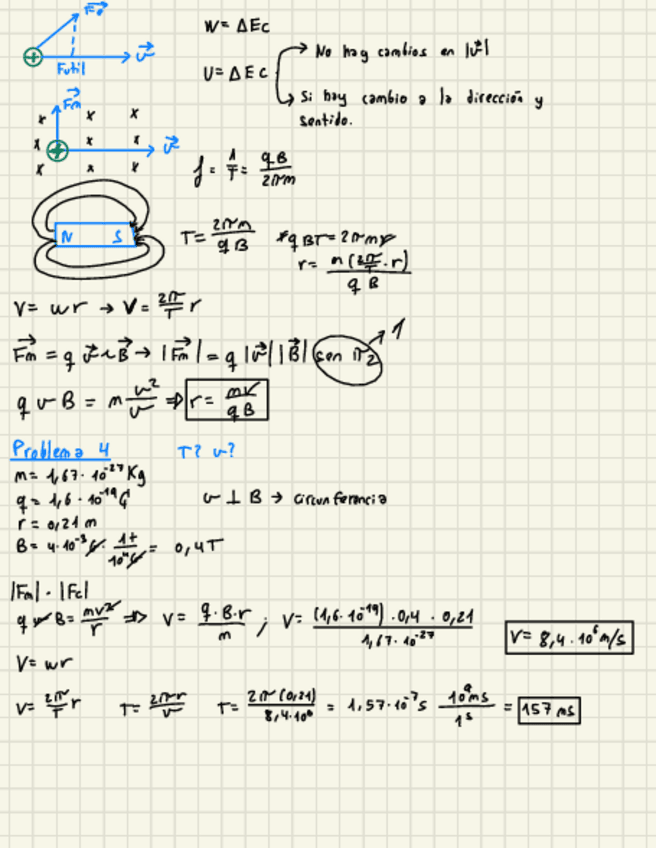 Fe
Futil v
W = ΔEc
U = ΔEc
No hay cambios en |v|
Si hay cambio a la dirección y
sentido.
Fm
x x x
x x v
x x x
f = 1/T = qB/2πm
N S
T = 2πm/qB
rqBT = 2πmr
r = m(2π/T · r)/qB
V = wr → V = 2π/T r
Fm = q v ∧ B → |Fm| = q |v| |B| sen π/2 1
q v B = m v²/v ⇒ r = mv/qB
Problema 4 T? v?
m = 1,67 · 10⁻²⁷ Kg
q = 1,6 · 10⁻¹⁹ C
r = 0,21 m
v ⊥ B → circunferencia
B = 4·10⁻³ G · 1T/10⁴G = 0,4 T
|Fm| · |Fc|
q v B = mv²/r ⇒ V = q·B·r/m ; V = (1,6·10⁻¹⁹)·0,4·0,21/1,67·10⁻²⁷
V = 8,4·10⁶ m/s
V = wr
V = 2π/T r T = 2πr/v T = 2π(0,21)/8,4·10⁶ = 1,57·10⁻⁷ s 10⁹ms/1s = 157 ms